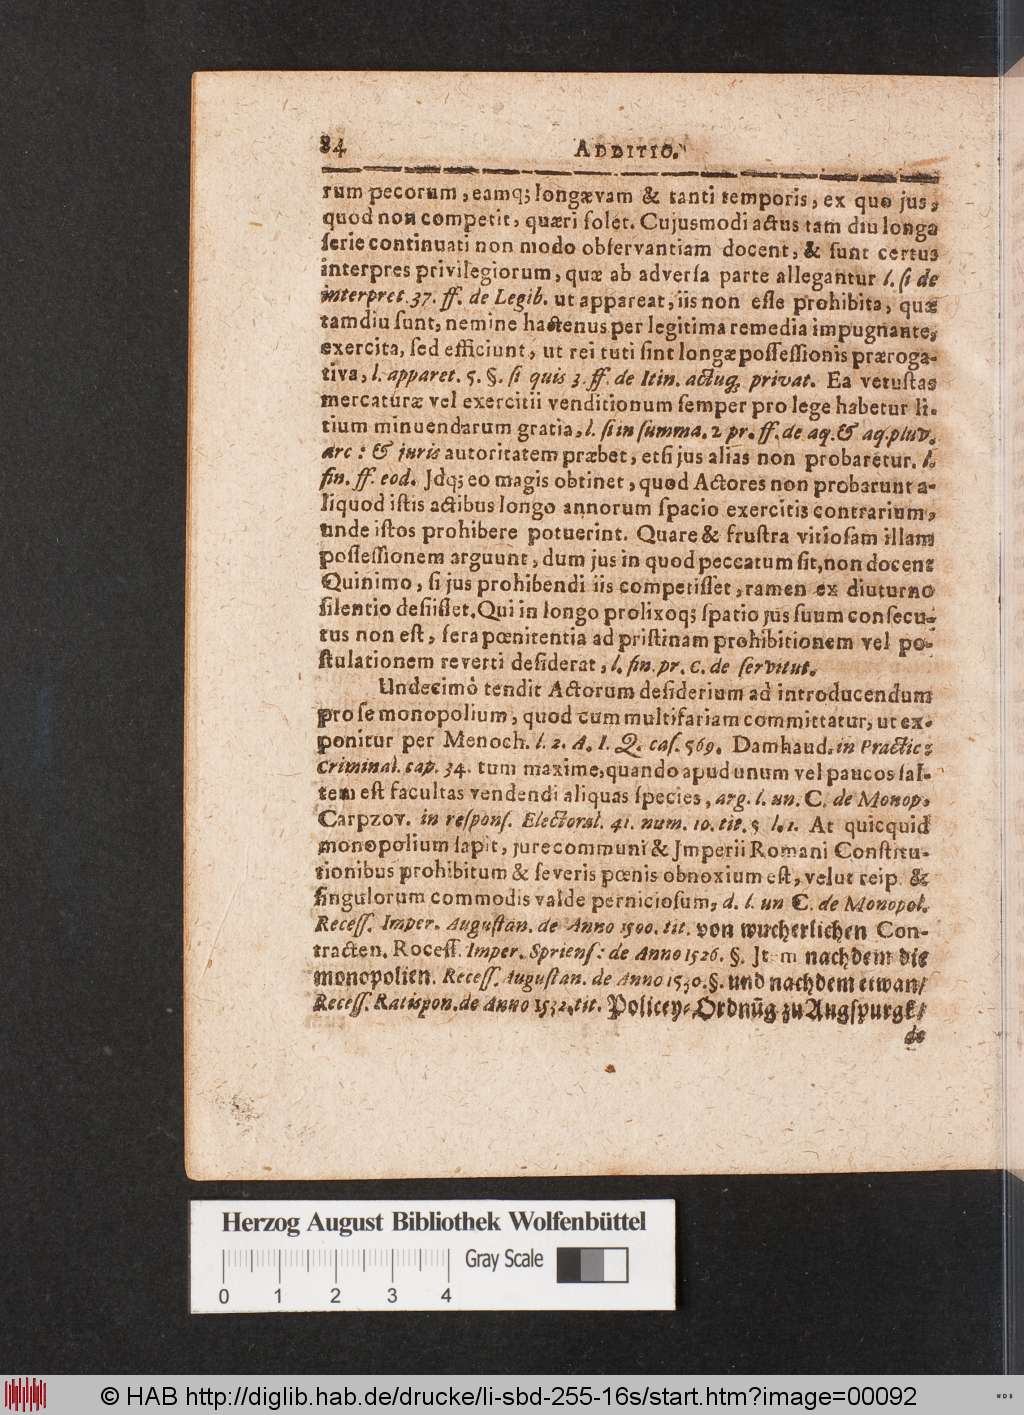 84 ADDITIO.
rum pecorum, eamq; longævam & tanti temporis, ex quo jus,
quod non competit, quæri solet. Cujusmodi actus tam diu longa
serie continuati non modo observantiam docent, & sunt certus
interpres privilegiorum, quæ ab adversa parte allegantur l. si de
interpret. 37. ff. de Legib. ut appareat, iis non esse prohibita, quæ
tamdiu sunt, nemine hactenus per legitima remedia impugnante,
exercita, sed efficiunt, ut rei tuti sint longæ possessionis præroga-
tiva, l. apparet. 5. §. si quis 3. ff. de Itin. actuq; privat. Ea vetustas
mercaturæ vel exercitii venditionum semper pro lege habetur li-
tium minuendarum gratia, l. si in summa. 2 pr. ff. de aq. & aq. pluv.
arc: & juris autoritatem præbet, etsi jus alias non probaretur. l.
fin. ff. eod. Jdq; eo magis obtinet, quod Actores non probarunt a-
liquod istis actibus longo annorum spacio exercitis contrarium,
unde istos prohibere potuerint. Quare & frustra vitiosam illam
possessionem arguunt, dum jus in quod peccatum sit, non docent
Quinimo, si jus prohibendi iis competisset, tamen ex diuturno
silentio desiisset. Qui in longo prolixoq; spatio jus suum consecu-
tus non est, sera pœnitentia ad pristinam prohibitionem vel po-
stulationem reverti desiderat, l. fin. pr. C. de servitut.
Undecimò tendit Actorum desiderium ad introducendum
pro se monopolium, quod cum multifariam committatur, ut ex-
ponitur per Menoch. l. 2. A. I. Q. cas. 569. Damhaud. in Practic:
Criminal. cap. 34. tum maxime, quando apud unum vel paucos sal-
tem est facultas vendendi aliquas species, arg. l. un. C. de Monop.
Carpzov. in respons. Electoral. 41. num. 10. tit. 5 l. 1. At quicquid
monopolium sapit, jure communi & Jmperii Romani Constitu-
tionibus prohibitum & severis pœnis obnoxium est, velut reip. &
singulorum commodis valde perniciosum, d. l. un C. de Monopol.
Recess. Imper. Augustan. de Anno 1500. tit. von wucherlichen Con-
tracten. Rocess. Imper. Spriens: de Anno 1526. §. Jtem nachdem die
monopolien. Recess. Augustan. de Anno 1530. §. und nachdem etwan/
Recess. Ratispon. de Anno 1532. tit. Policey-Ordnūg zu Augspurgk/
de
Herzog August Bibliothek Wolfenbüttel
Gray Scale
0 1 2 3 4
© HAB http://diglib.hab.de/drucke/li-sbd-255-16s/start.htm?image=00092
WDB